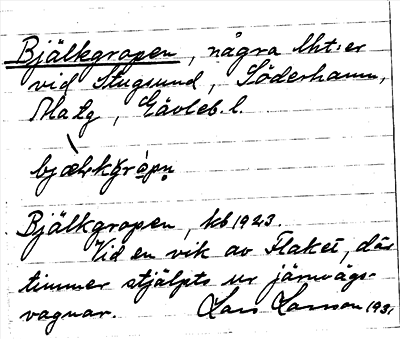 Bjälkgropen, några lht:er
vid Stugsund, Söderhamn,
Matg, Gävleb. l.
bjælkgròpn
Bjälkgropen, kb 1923.
Vid en vik av Flaket, där
timmer stjälpts ur järnvägs-
vagnar. Lars Larsson 1931